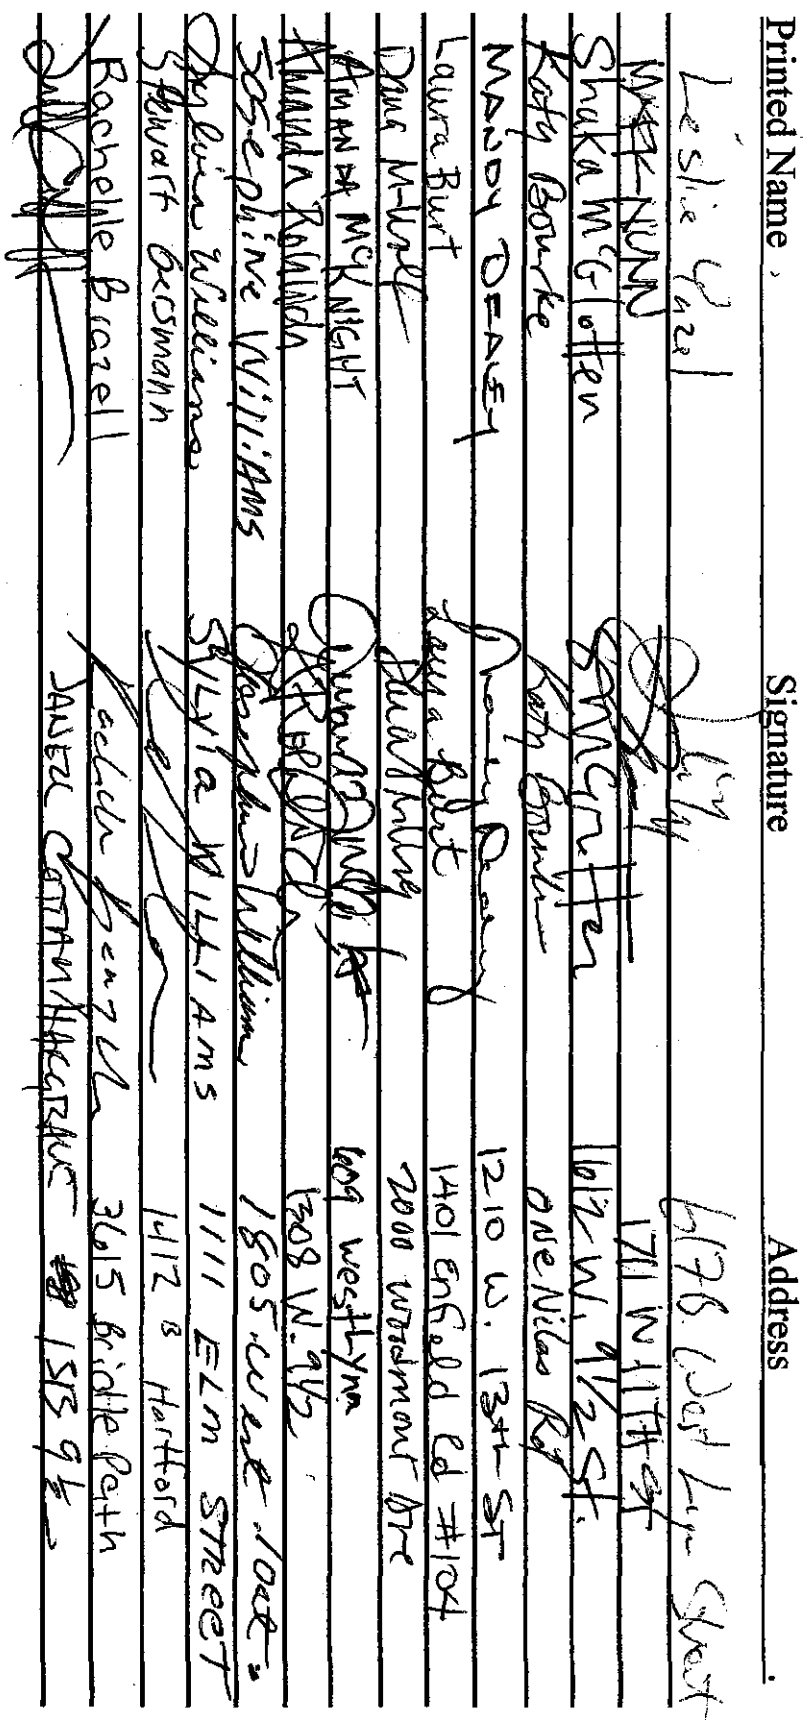 Printed Name Signature Address
Leslie 617B West Lynn Street
MARK NUNN 1711 W 11TH ST
Shaka McGlotten 1612 W. 9 1/2 St.
Katy Bourke Katy Bourke ONE Niles Rd
MANDY DEALEY Mandy Dealey 1210 W. 13th ST
Laura Burt Laura Burt 1401 Enfield Rd #104
Dana 2000 Woodmont Ave
AMANDA McKNIGHT 609 West Lynn
Amanda 1308 W. 9 1/2
Josephine Williams Josephine William 1805 West
Sylvia Williams SYLVIA WILLIAMS 1111 ELM STREET
Stewart Gersmann 1412 B Hartford
Rachelle Brazell 3615 Bridle Path
JANEU COTTAM/HARGRAVE 1513 9 1/2